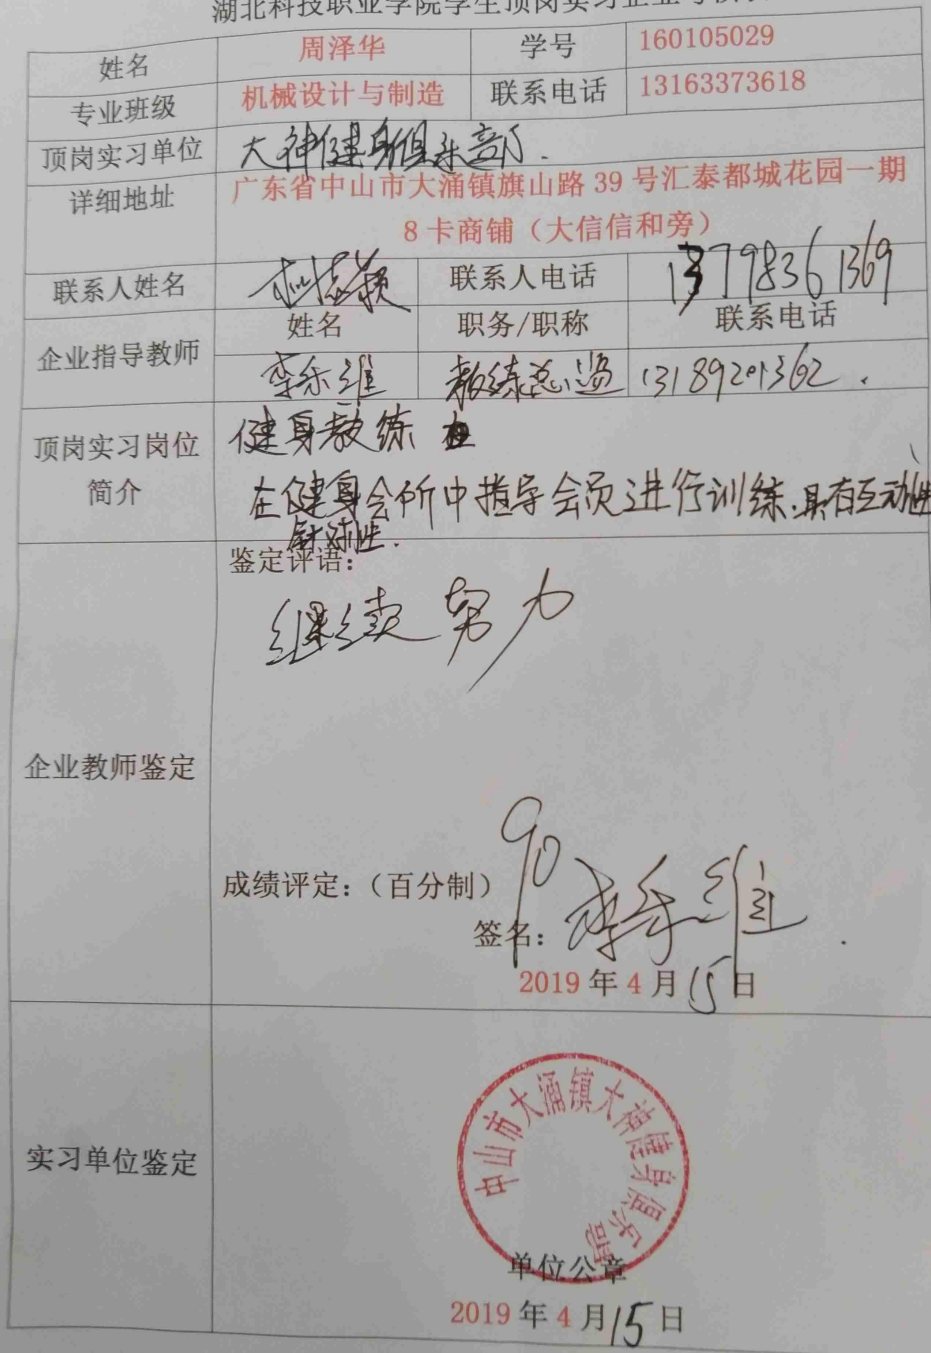 湖北科技职业学院学生顶岗实习企业考核表
姓名 周泽华 学号 160105029
专业班级 机械设计与制造 联系电话 13163373618
顶岗实习单位 大神健身俱乐部.
详细地址 广东省中山市大涌镇旗山路 39 号汇泰都城花园一期
8 卡商铺（大信信和旁）
联系人姓名 联系人电话 13798361369
企业指导教师 姓名 职务/职称 联系电话
李乐维 教练总监 13189201362.
顶岗实习岗位 健身教练
简介 在健身会所中指导会员进行训练.具有互动性、
针对性.
鉴定评语：
继续努力
企业教师鉴定
90
成绩评定：（百分制）
签名： 李乐维
2019 年 4 月 15 日
中山市大涌镇大神健身俱乐部
实习单位鉴定
单位公章
2019 年 4 月 15 日